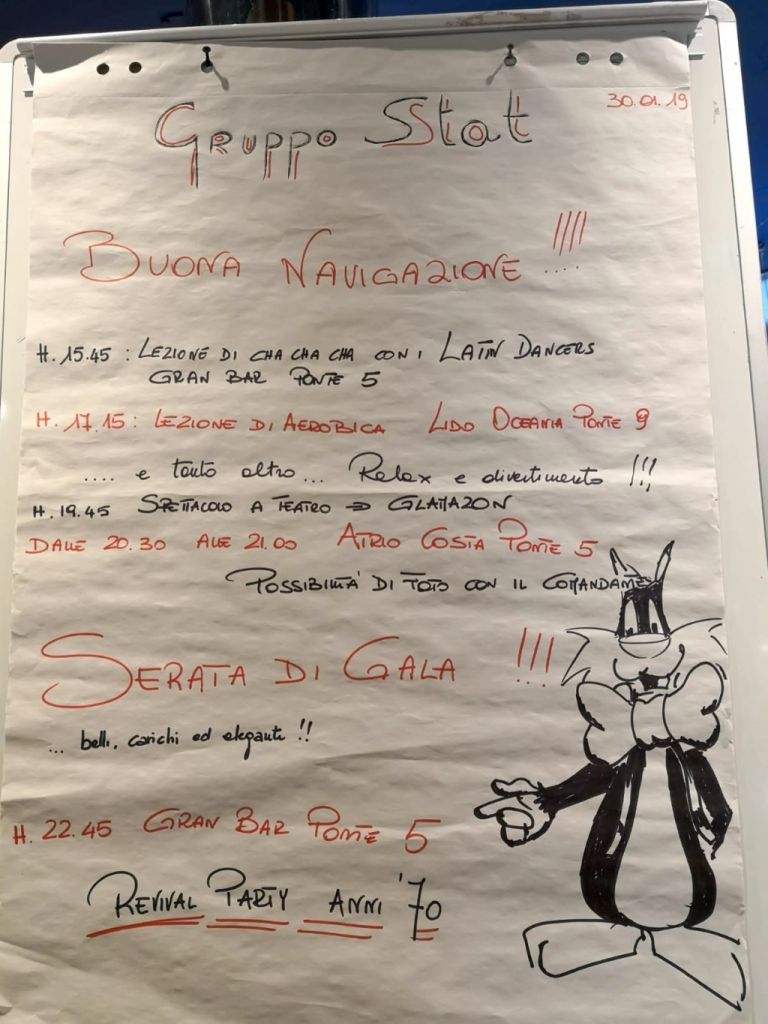 30.01.19
Gruppo Stat
BUONA NAVIGAZIONE !!!!
H. 15.45 : LEZIONE DI CHA CHA CHA CON I LATIN DANCERS
GRAN BAR PONTE 5
H. 17.15 : LEZIONE DI AEROBICA LIDO OCEANIA PONTE 9
.... e tanto altro... Relax e divertimento !!!
H. 19.45 SPETTACOLO A TEATRO => GLAMAZON
DALLE 20.30 ALLE 21.00 ATRIO COSTA PONTE 5
POSSIBILITÀ DI FOTO CON IL COMANDANTE
SERATA DI GALA !!!
... belli, carichi ed eleganti !!
H. 22.45 GRAN BAR PONTE 5
REVIVAL PARTY ANNI '70